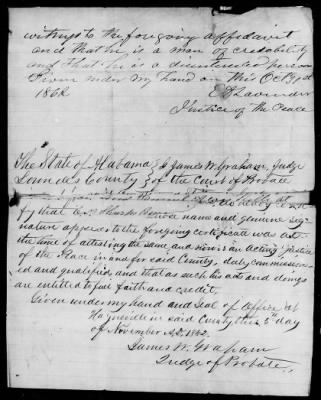 witness to the foregoing affidavit
and that he is a man of credability
and that he is a disinterested person
Given under my hand on this Oct
1862
Justice of the Peace
The State of Alabama } I James W. Graham, Judge
Lownds County } of the Court of Probate
do hereby certi
fy that whose name and genuine sig
nature appears to the forgoing certificate was at
the time of attesting the same and now is an acting Justice
of the Peace in and for said County, duly commission
ed and qualified, and that as such his acts and doings
are entitled to full faith and credit.
Given under my hand and seal of office at
Hayneville in said County this 5th day
of November A.D. 1862.
James W. Graham
Judge of Probate